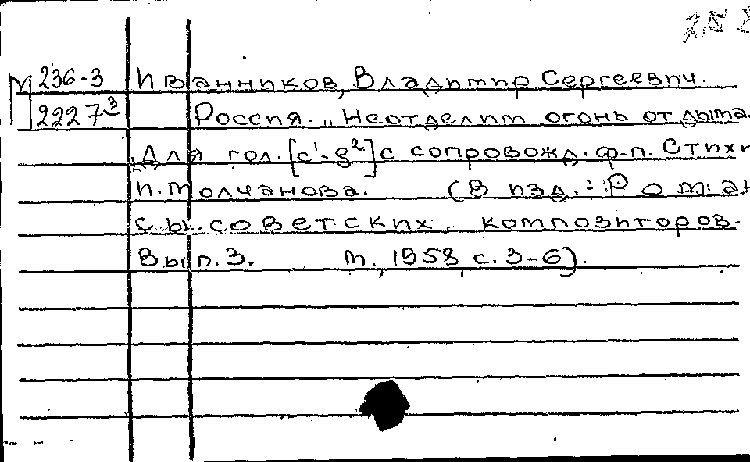 М 236-3 Иванников, Владимир Сергеевич.
2227³ Россия. „Не отделит огонь от дыма.
Для гол. [c¹-g²] с сопровожд. ф-п. Стихи
И. Молчанова. (В изд.: Роман
сы советских композиторов.
Вып. 3. М., 1958 с. 3-6).